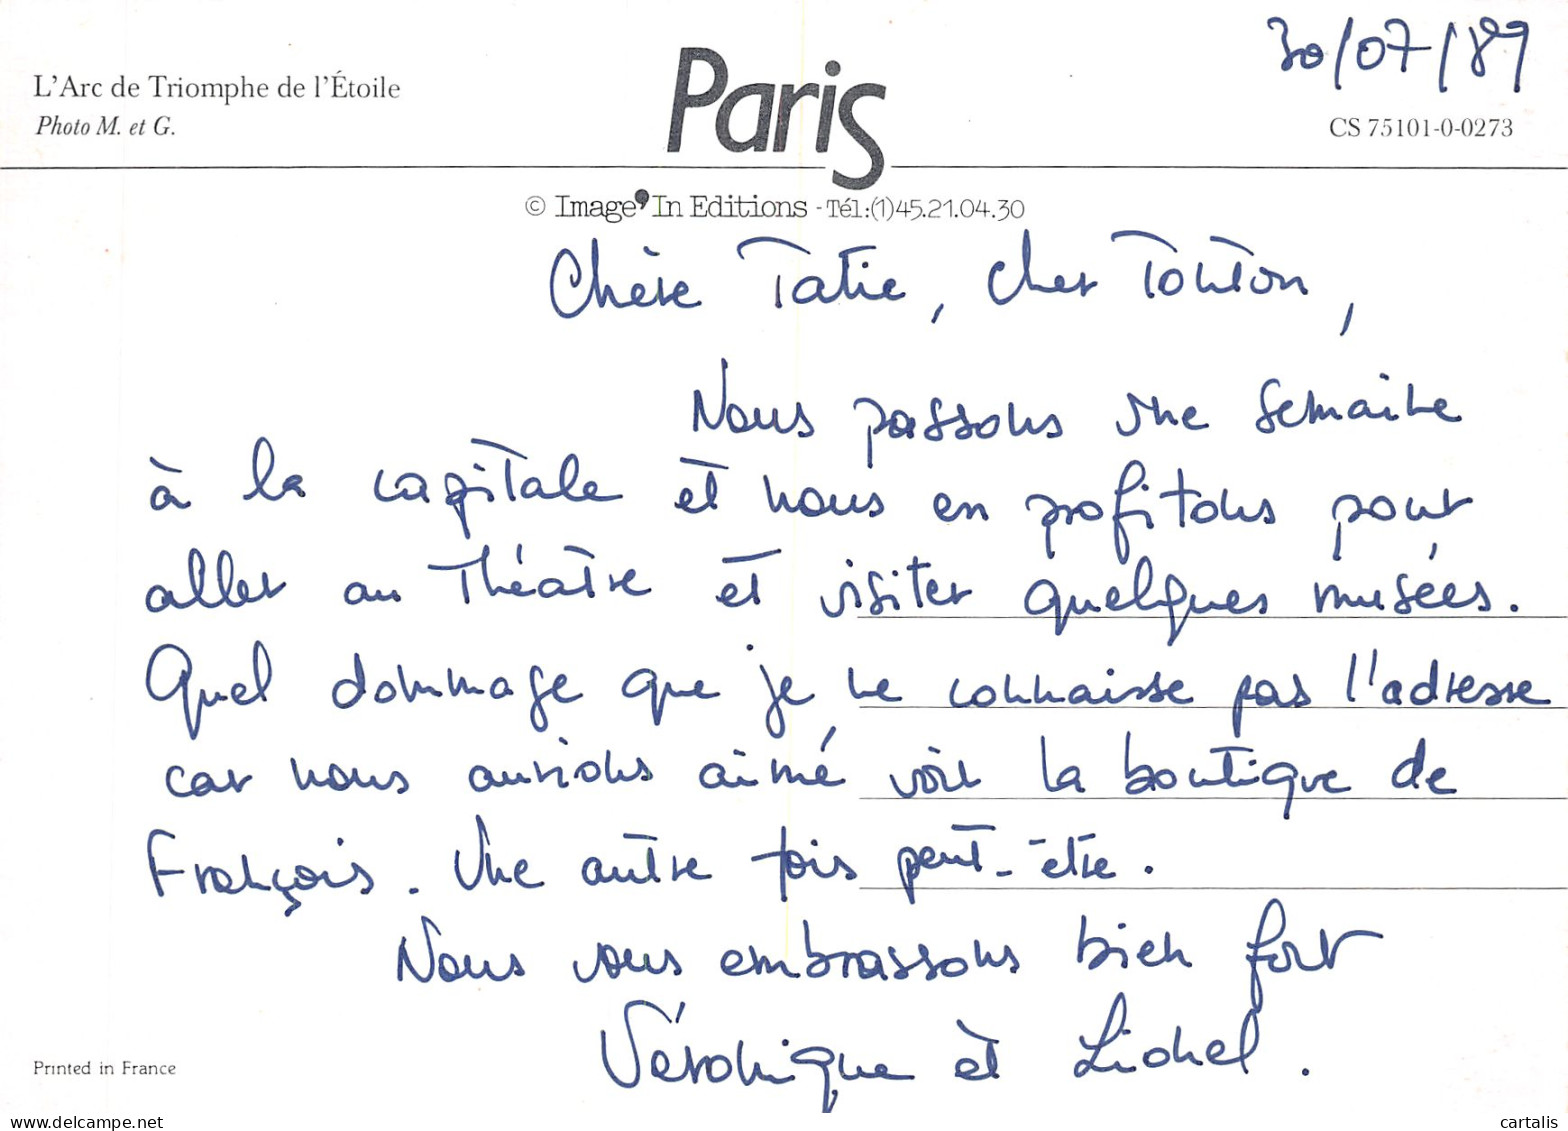 30/07/89
L'Arc de Triomphe de l'Étoile
Paris
Photo M. et G.
CS 75101-0-0273
© Image'In Editions - Tél:(1)45.21.04.30
Chère Tatie, cher Tonton,
Nous passons une semaine
à la capitale et nous en profitons pour
aller au Théatre et visiter quelques musées.
Quel dommage que je ne connaisse pas l'adresse
car nous aurions aimé voir la boutique de
François. Une autre fois peut-être.
Nous vous embrassons bien fort
Véronique et Lionel.
Printed in France
www.delcampe.net
cartalis